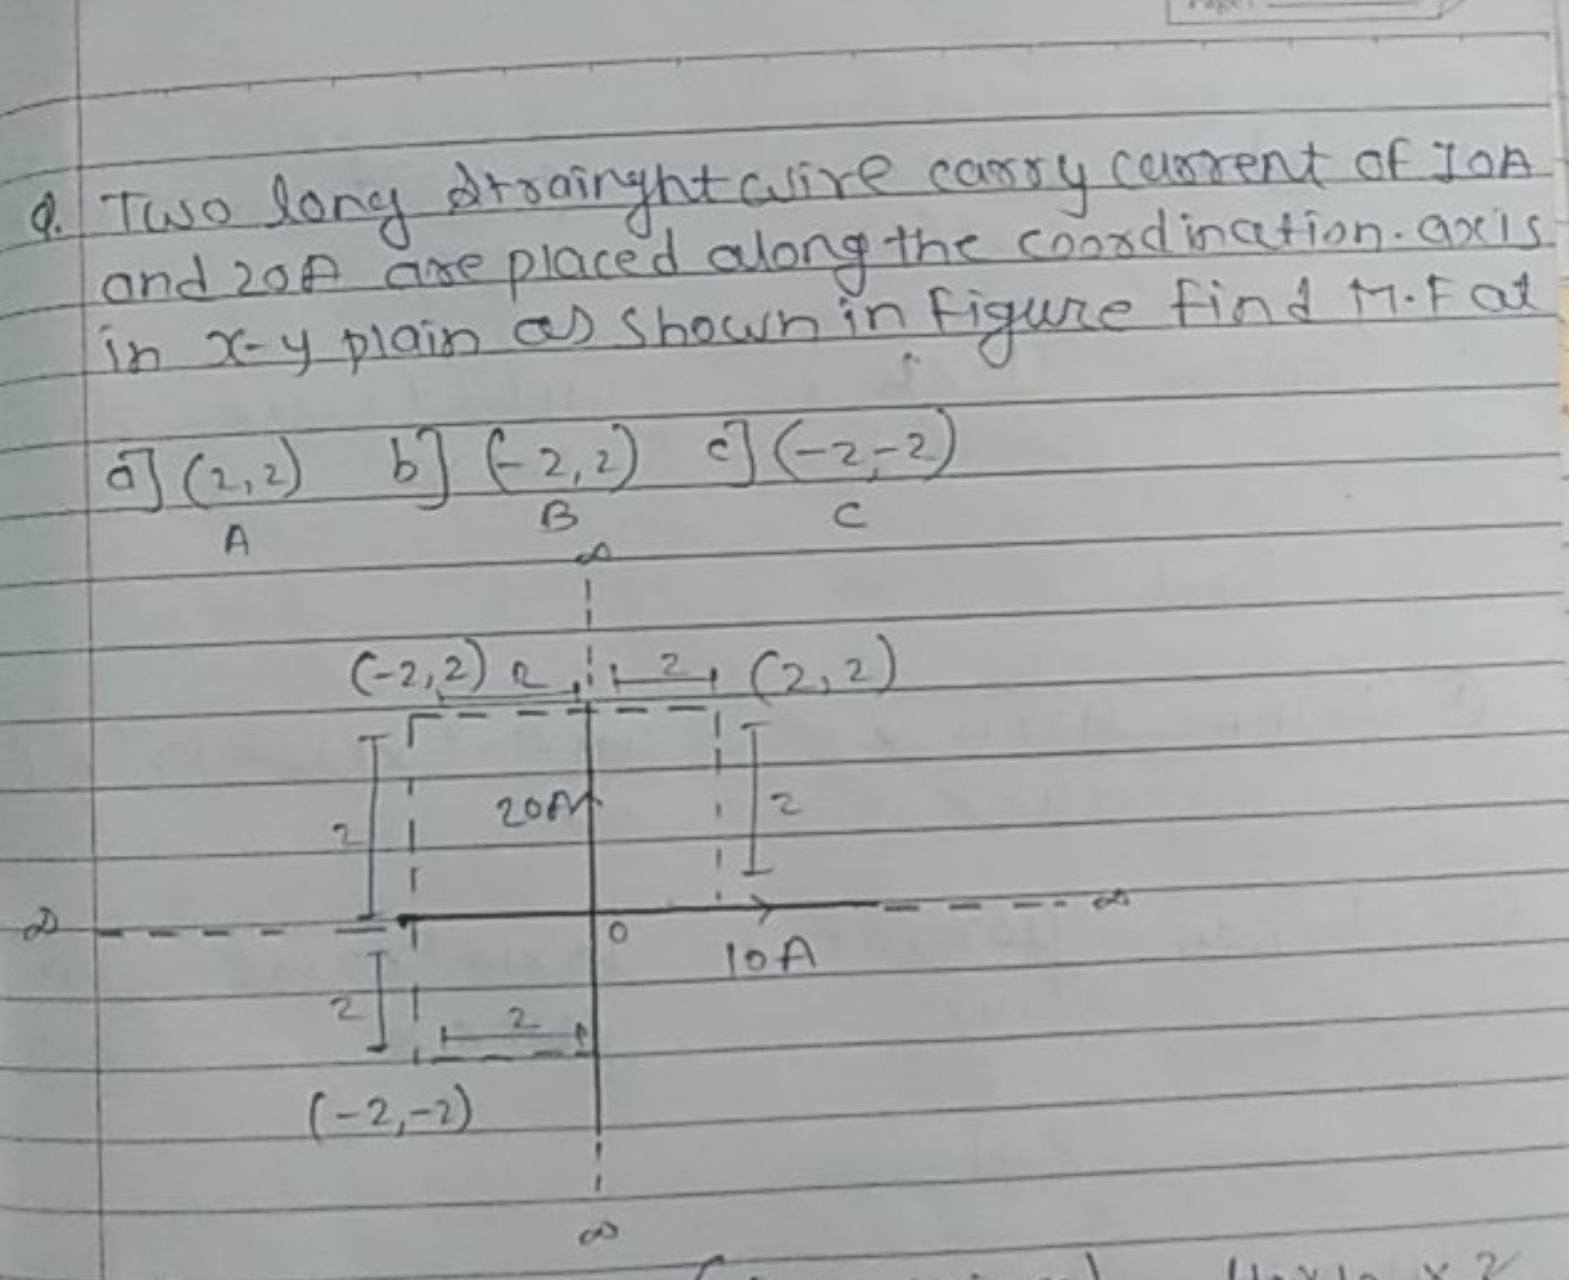 Page:
Q. Two long drrainght wire carry current of 10A
and 20A are placed along the coordination. axis
in x-y plain as shown in figure find M.F at
a] (2,2) b] (-2,2) c] (-2,-2)
A B C
∞
(-2,2) 2 2 (2,2)
20A
2 2
∞ ∞
0
10A
2 2
(-2,-2)
∞